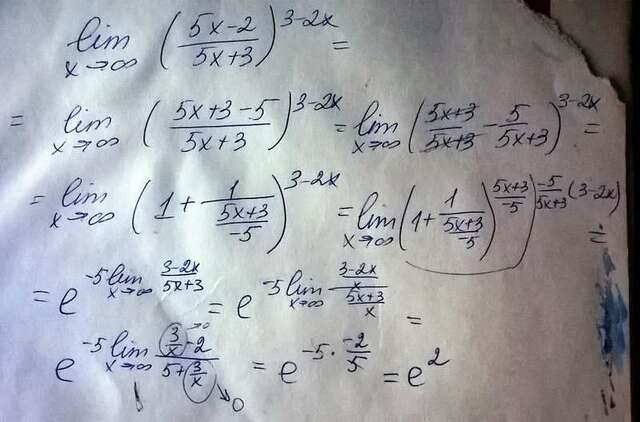 lim x→∞ ((5x-2)/(5x+3))^(3-2x) =
= lim x→∞ ((5x+3-5)/(5x+3))^(3-2x) = lim x→∞ ((5x+3)/(5x+3) - 5/(5x+3))^(3-2x) =
= lim x→∞ (1 + 1/((5x+3)/(-5)))^(3-2x) = lim x→∞ ((1 + 1/((5x+3)/(-5)))^((5x+3)/(-5)))^((-5)/(5x+3) (3-2x)) =
= e^(-5 lim x→∞ (3-2x)/(5x+3)) = e^(-5 lim x→∞ ((3-2x)/x)/((5x+3)/x)) =
e^(-5 lim x→∞ (3/x - 2)/(5 + 3/x)) →0 →0 = e^(-5 · (-2)/5) = e^2